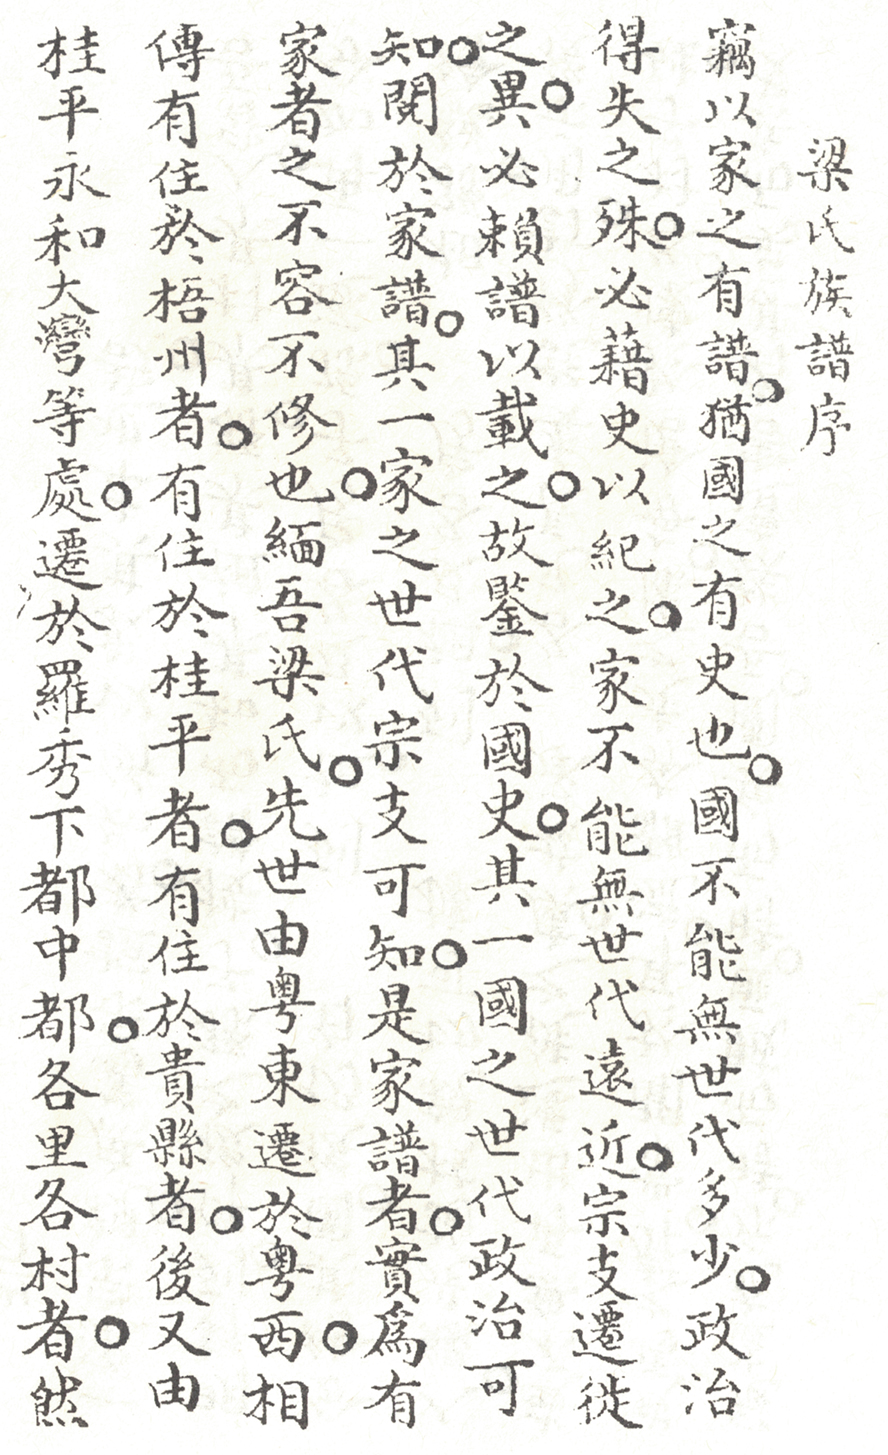 梁氏族譜序
竊以家之有譜。猶國之有史也。國不能無世代多少。政治
得失之殊。必藉史以紀之。家不能無世代遠近。宗支遷徙
之異。必賴譜以載之。故鑒於國史。其一國之世代政治可
知。閱於家譜。其一家之世代宗支可知。是家譜者。實為有
家者之不容不修也。緬吾梁氏。先世由粵東遷於粵西。相
傳有住於梧州者。有住於桂平者。有住於貴縣者。後又由
桂平永和大灣等處。遷於羅秀下都中都。各里各村者。然